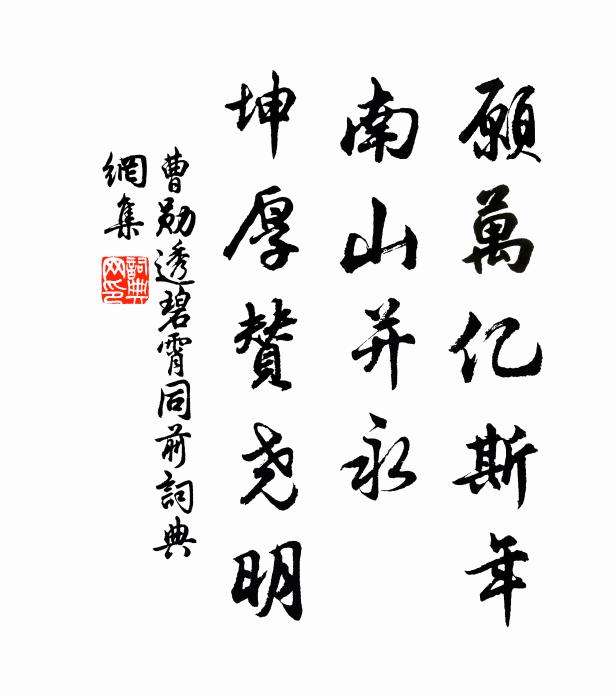 願萬亿斯年
南山并永
坤厚赞尧明
曹勋透碧霄同前詞典
網集
詞典
网印